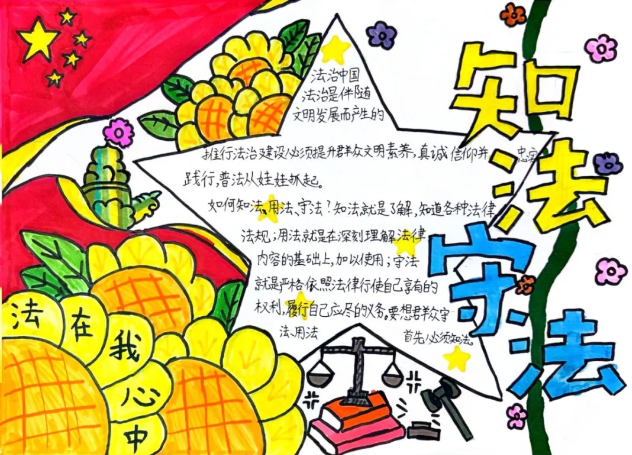 知法
守法
法治中国
法治是伴随
文明发展而产生的
推行法治建设必须提升群众文明素养,真诚信仰并忠实
践行,普法从娃娃抓起。
如何知法、用法、守法?知法就是了解,知道各种法律
法规;用法就是在深刻理解法律
内容的基础上,加以使用;守法
就是严格依照法律行使自己享有的
权利,履行自己应尽的义务。要想群众守
法、用法 首先必须知法。
法在我心中